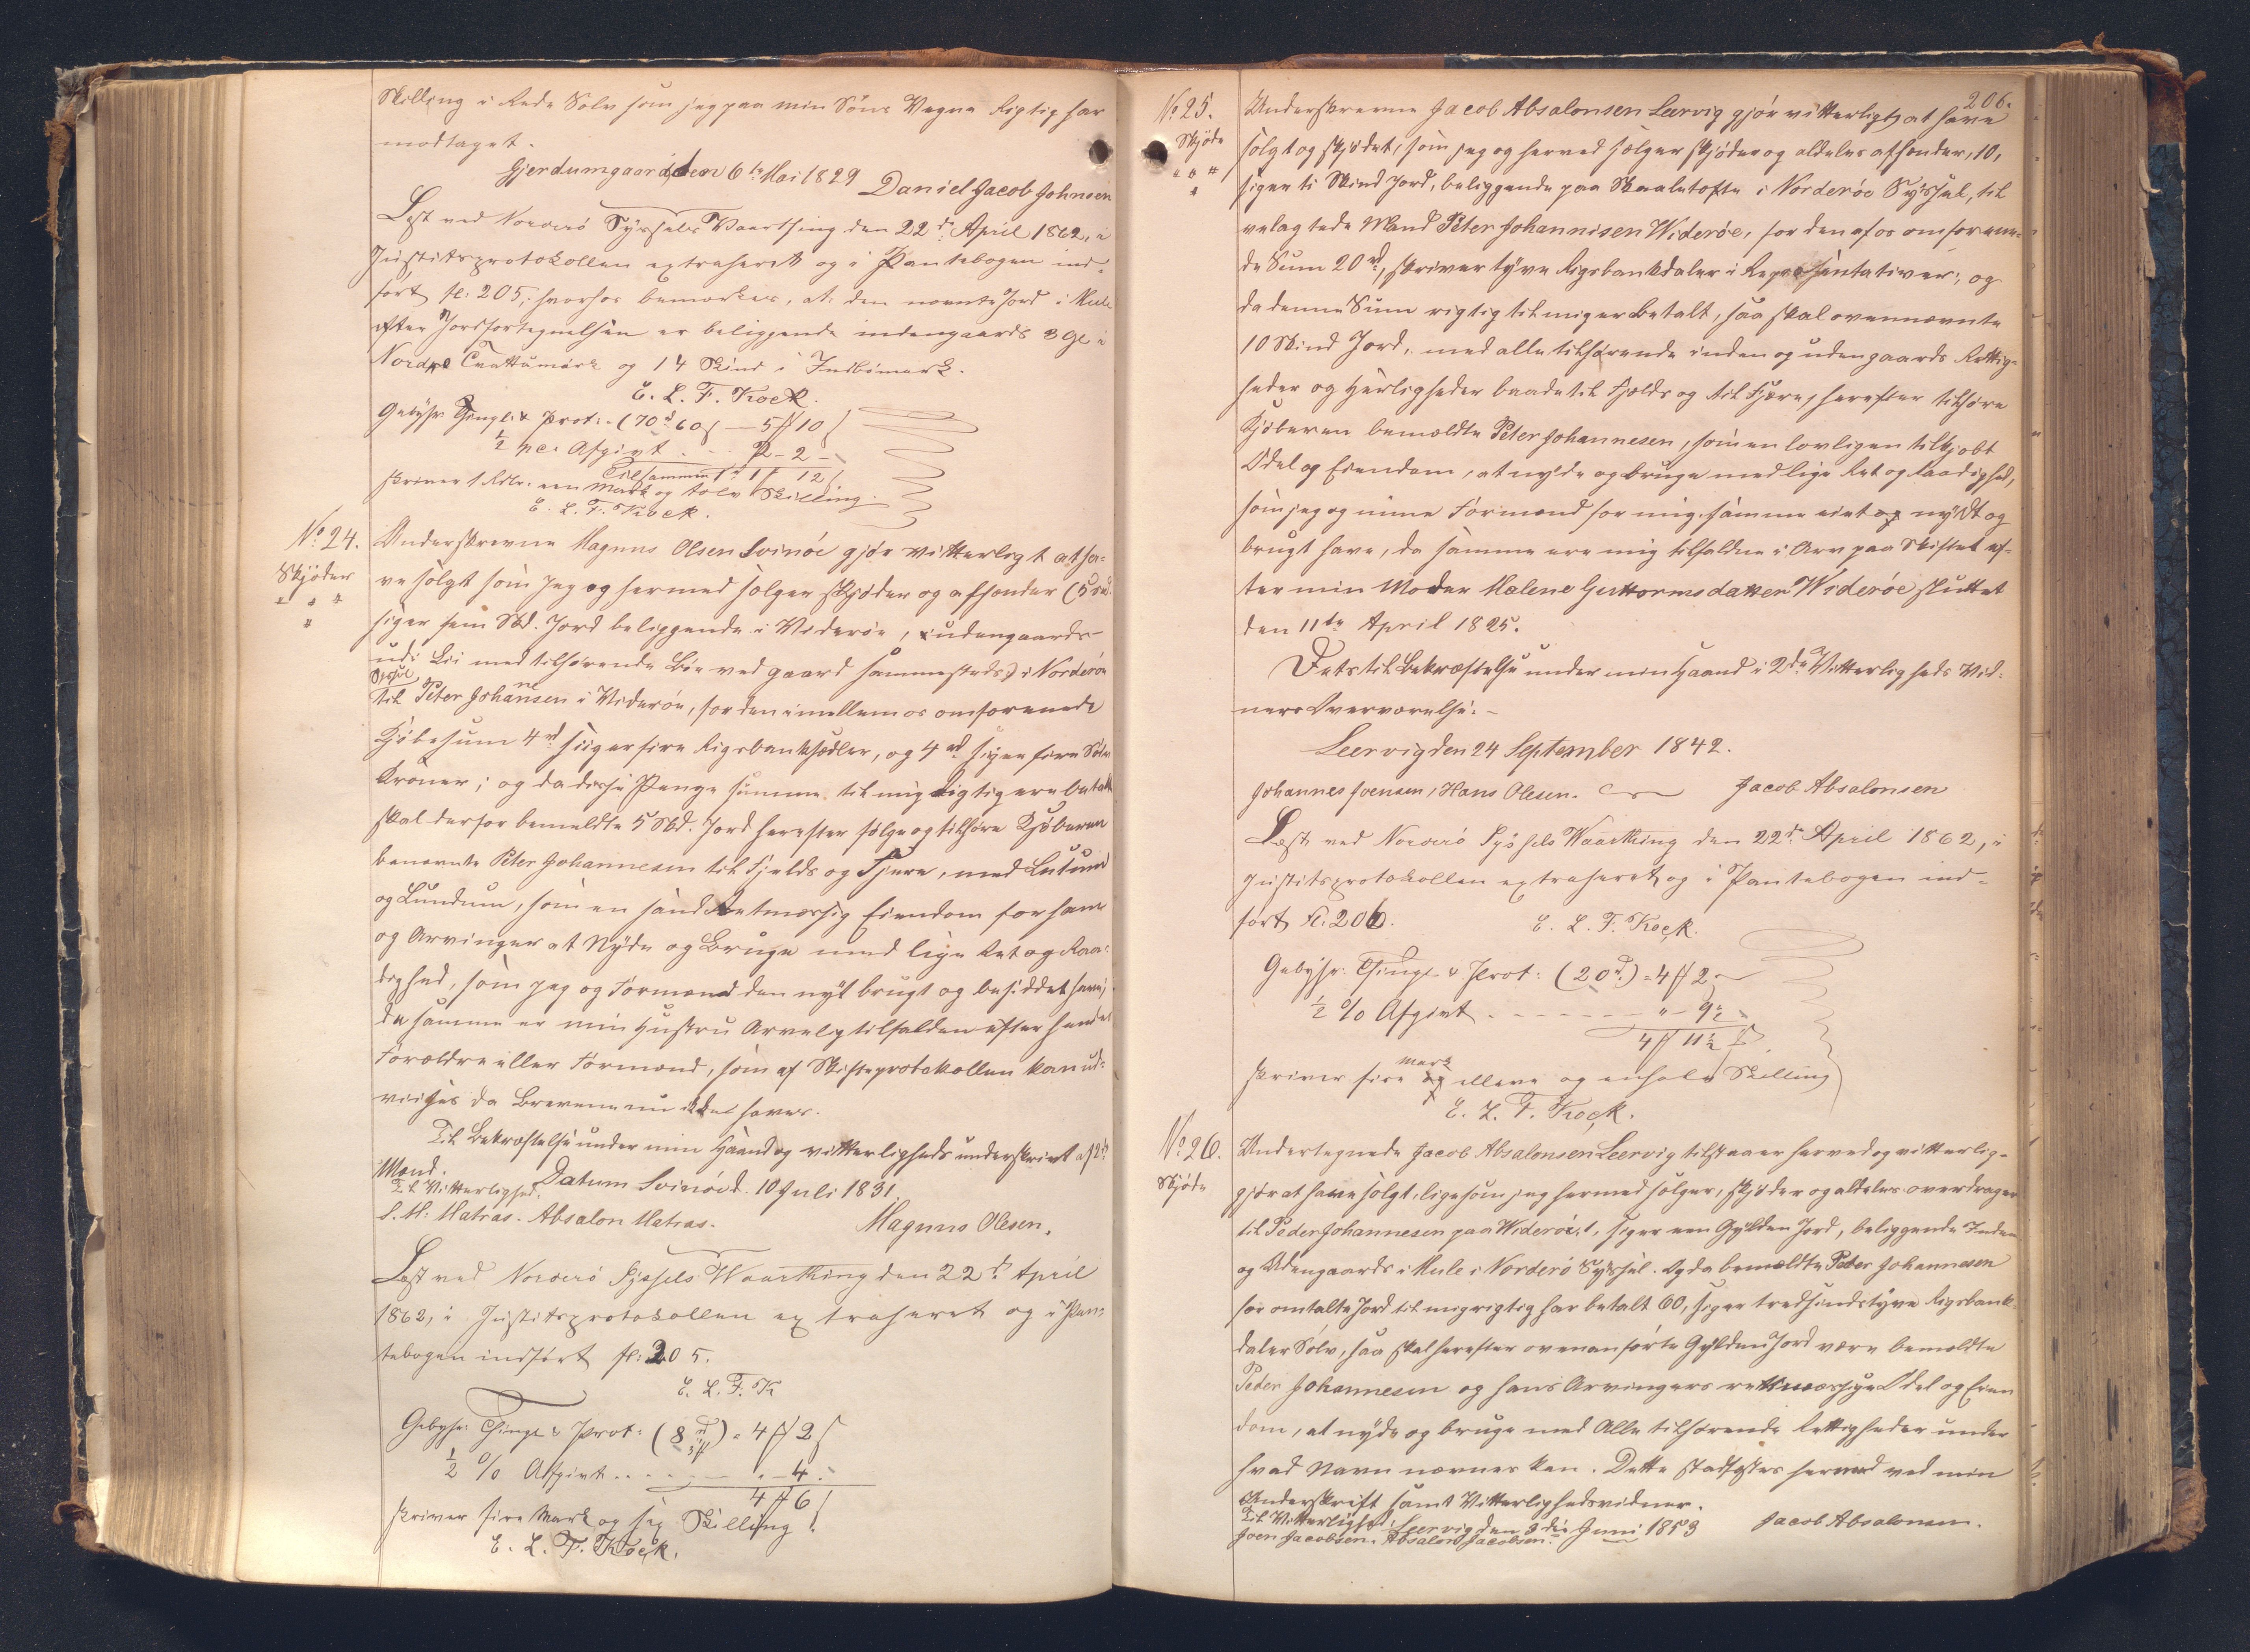 Skilling i Rede Sølv som jeg paa min Søns Vegne Rigtig har
modtaget.
Gjerdumgaard den 6te Mai 1829 Daniel Jacob Johnsen
Lest ved Norderø Syssels Vaarthing den 22de April 1862, i
Justitsprotokollen extraheret og i Pantebogen ind-
ført fl: 205, hvorhos bemærkes, at den nævnte Jord i Mule
efter Jordfortegnelsen er beliggende indengaards 3 Gl. i
Nordre Trattumørk og 14 Skind i Indbømark.
E. L. F. Kock.
Gebyhr Thingl: & Prot: (70 d 60 ß — 5 # 10 ß
½ pc. Afgivt . . . 2 - 2 -
Tilsammen 1 d 1 # 12 ß
skriver 1 Rdlr. een Mark og tolv Skilling.
E. L. F. Kock.
No 24. Underskrevne Magnus Olsen Svinöe gjør vitterligt at ha-
Skjøder ve solgt som Jeg og hermed sælger skjøder og afhænder (5 Skd.
siger fem Skd. Jord beliggende i Viderøe, udengaards
udi Lii med tilhørende Bøe ved gaard sammesteds) i Norderøe
Syssel
til Peter Johannesen i Viderøe, for den imellem os omforenede
Kjøbesum 4 rd siiger fire Rigsbanksedler, og 4 rd siger fire Sølv
Kroner; og da disse Penge summe til mig Rigtig ere betalt
skal derfor bemeldte 5 Skd. Jord herefter følge og tilhøre Kjøberen
benævnte Peter Johannesen til Fjelds og Fjære, med Lutum
og Lundum, som en sand Retmæssig Eiendom for ham
og Arvinger at Nyde og Bruge med lige Ret og Raa-
dighed, som jeg og Formænd den nyt brugt og besiddet have;
da samme er min Hustru Arvelig tilfalden efter hendes
Forældre eller Formænd, som af Skifteprotokollen kan ud-
viises da Brevene nu ikke haves.
Til Bekræftelse under min Haand og vitterligheds underskrivt af 2de
Mænd. Datum Svinöe d. 10 Juli 1831.
Til Vitterlighed:
S. M: Matras. Absalon Matras. Magnus Olesen.
Lest ved Norderø Syssels Vaarthing den 22de April
1862, i Justitsprotokollen extraheret og i Pan-
tebogen indført fl: 205.
E. L. F. K
Gebyhr Thingl & Prot: (8 d) = 4 # 2 ß
½ % Afgivt . . . " - 4 -
4 # 6 ß
skriver fire Mark og sex Skilling
E. L. F. Kock.
206.
No 25. Underskrevne Jacob Absalonsen Leervig gjør vitterligt, at have
Skjøde solgt og skjødet, som jeg og herved sælger skjøder og aldeles afhænder, 10,
siger ti Skind Jord, beliggende paa Skaaletofte i Norderøe Syssel, til
velagtede Mand Peter Johannisen Widerøe, for den af os omforene-
de Sum 20 rd, skriver tyve Rigsbankdaler i Repræsentativer; og
da denne Sum rigtig til mig er betalt, saa skal ovennævnte
10 Skind Jord, med alle tilhørende inden og udengaards Rettig-
heder og Herligheder baade til Fjelds og til Fjære, herefter tilhøre
Kjøberen bemældte Peter Johannesen, som en lovligen tilkjøbt
Odel og Eiendom, at nyde og bruge med lige Ret og Raadighed,
som jeg og mine Formænd for mig samme eiet og nydt og
brugt have, da samme ere mig tilfaldne i Arv paa Skiftet ef-
ter min Moder Malene Guttormsdatter Widerøe sluttet
den 11te April 1825.
Dets til Bekræftelse under min Haand i 2de Vitterligheds Vid-
ners Overværelse.
Leervig den 24 September 1842.
Johannes Joensen, Hans Olesen. Jacob Absalonsen
Lest ved Norderø Syssels Vaarthing den 22de April 1862, i
Justitsprotokollen extraheret og i Pantebogen ind-
ført fl. 206. E. L. F. Kock.
Gebyhr: Thingl & Prot: (20 d) = 4 # 2
½ % Afgivt . . . " - 9½
4 # 11½ ß
skriver fire Mark og elleve og enhalv Skilling
E. L. F. Kock.
No 26. Undertegnede Jacob Absalonsen Leervig tilstaaer herved og vitterlig-
Skjøde gjør at have solgt, ligesom jeg hermed sælger, skjøder og aldeles overdrager
til Peder Johannesen paa Widerøe, 1, siger een Gylden Jord, beliggende Inden
og Udengaards i Mule i Norderø Syssel. Og da bemældte Peter Johannesen
for omtalte Jord til mig rigtig har betalt 60, siger tredsindstyve Rigsbank-
daler Sølv, saa skal herefter ovenanførte Gylden Jord være bemældte
Peder Johannesen og hans Arvingers retmæssige Odel og Eien
dom, at nyde og bruge med Alle tilhørende Rettigheder under
hvad Navn nævnes kan. Dette stadfæstes herved ved min
Underskrift samt Vitterlighedsvidner.
Til Vitterlighed: Leervig den 3die Juni 1853 Jacob Absalonsen.
Joen Jacobsen. Absalon Jacobsen.